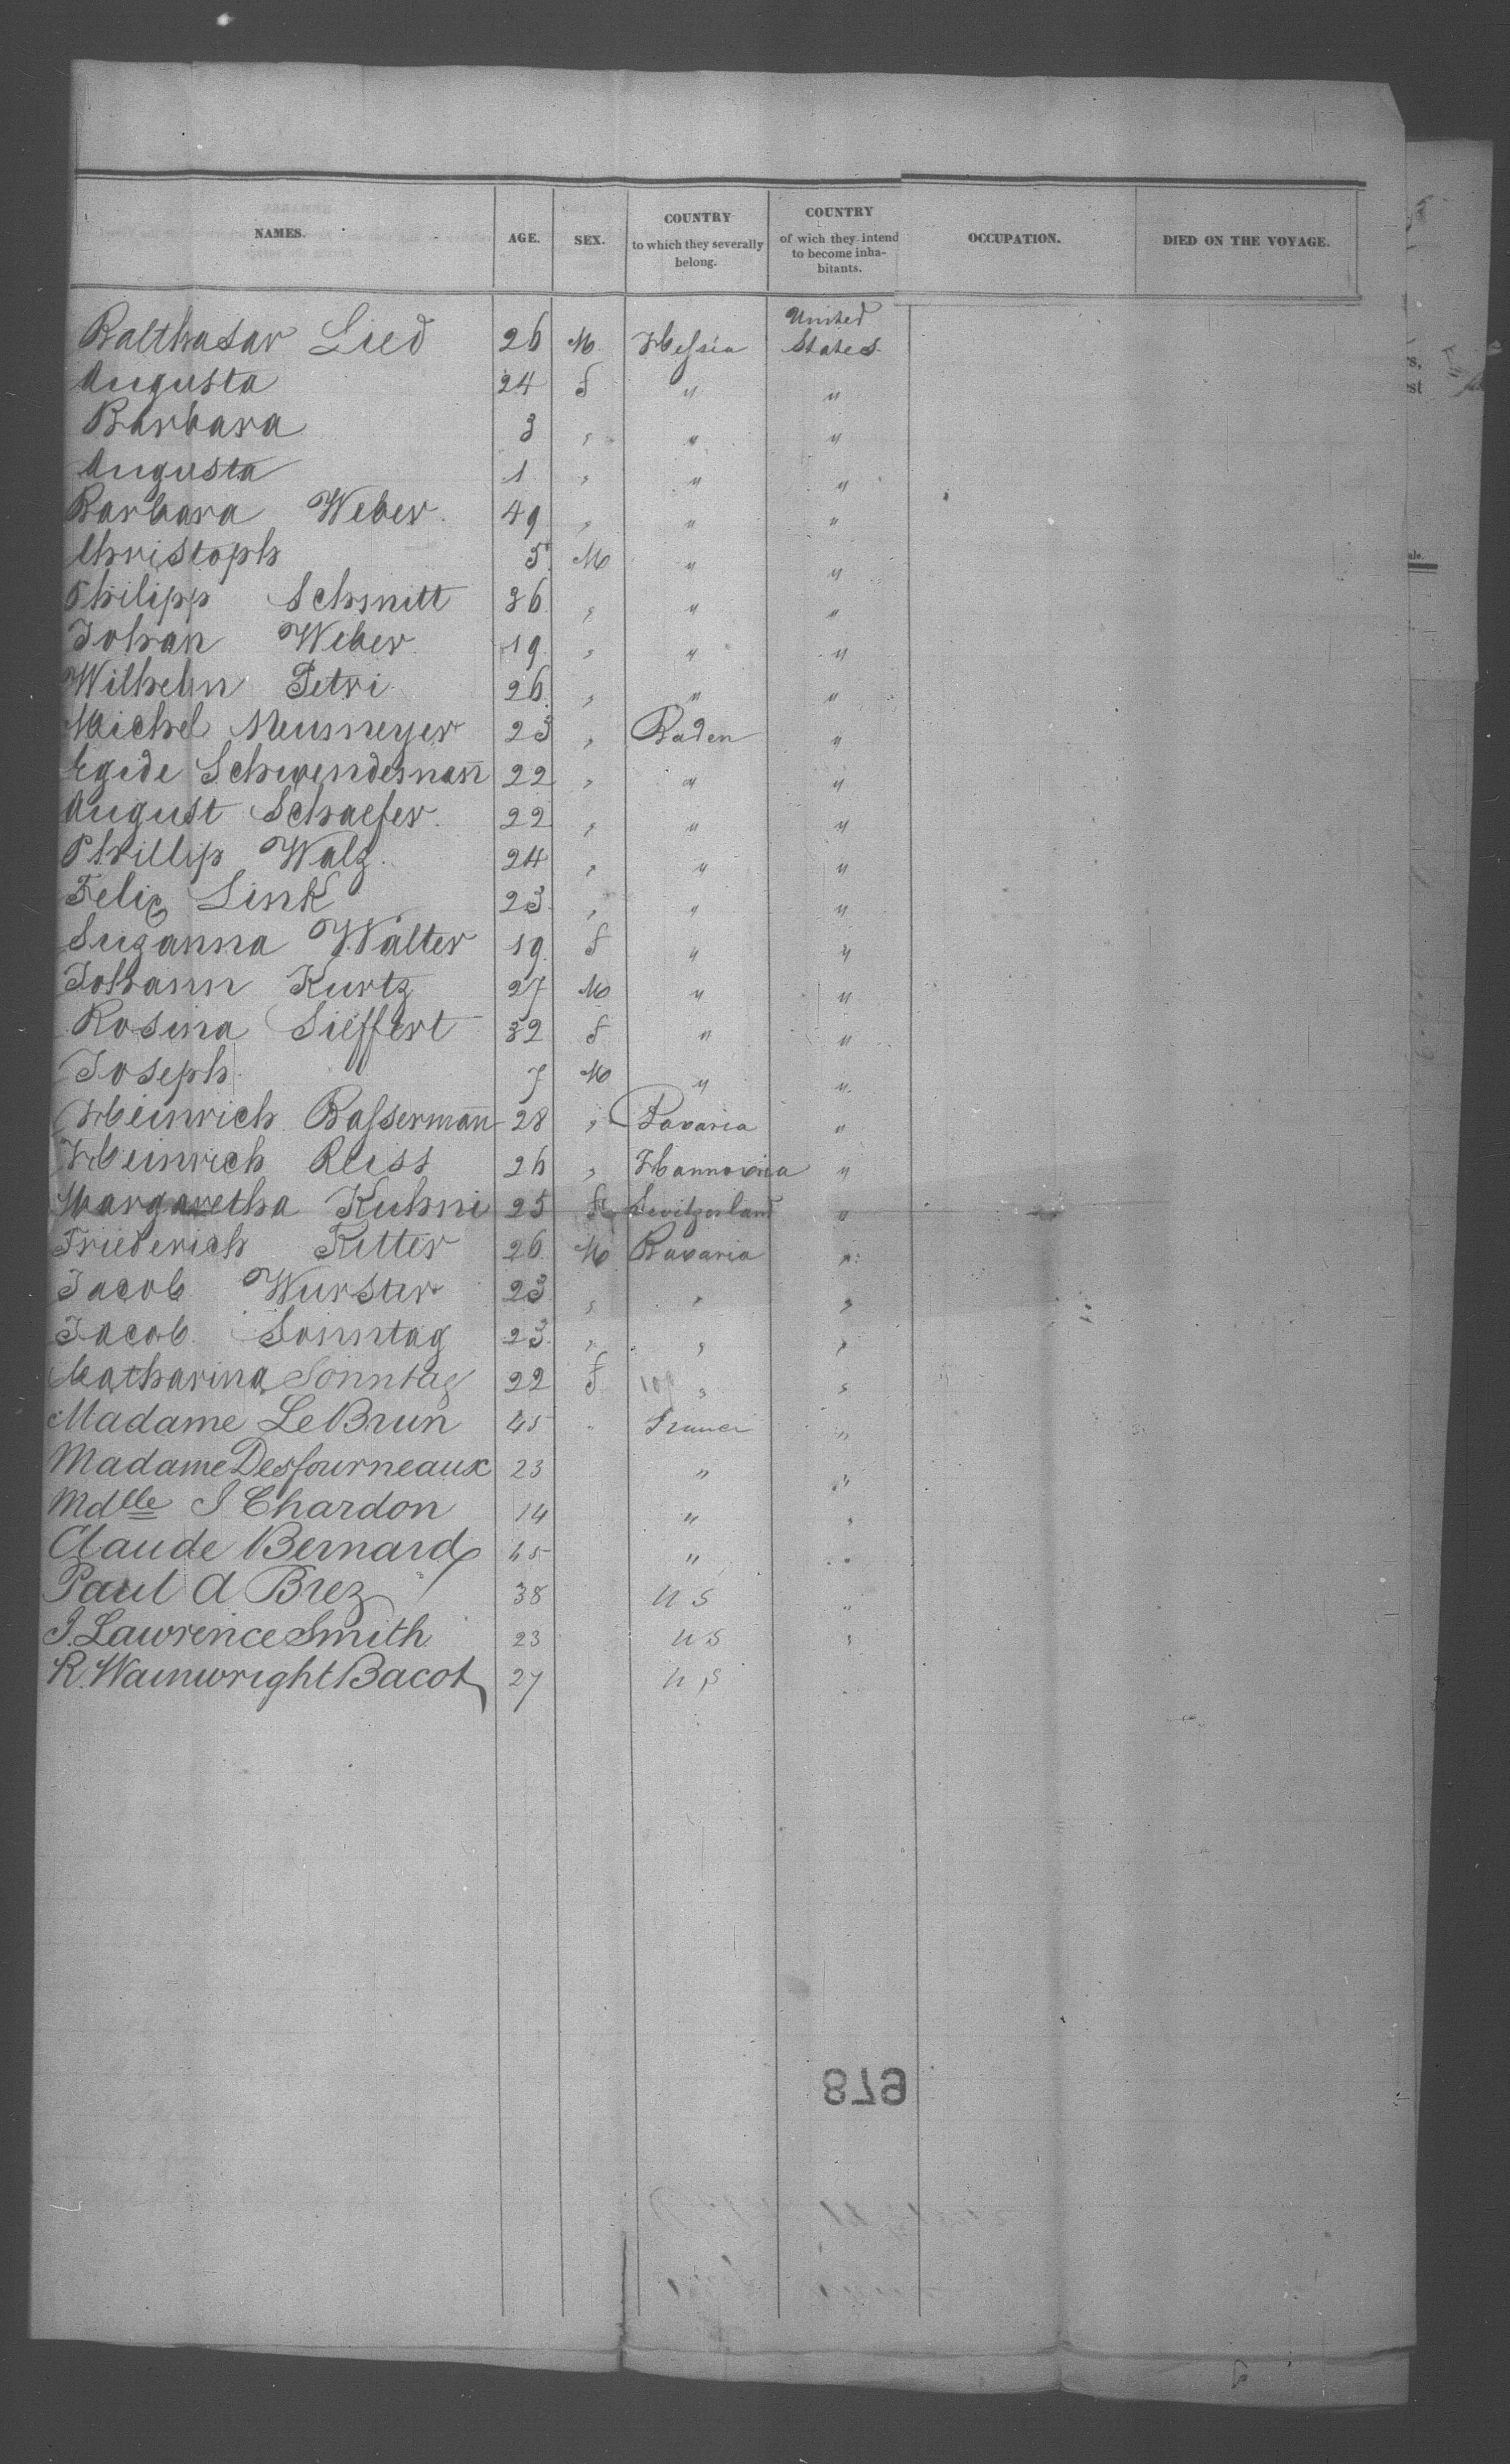 NAMES. AGE. SEX. COUNTRY to which they severally belong. COUNTRY of wich they intend to become inha-bitants. OCCUPATION. DIED ON THE VOYAGE.
Balthasar Lied 26 M Hessia United States
Augusta 24 f " "
Barbara 3 " " "
Augusta 1 " " "
Barbara Weber 49 " " "
Christoph 5 M " "
Philipp Schmitt 36 " " "
Johan Weber 19 " " "
Wilhelm Petri 26 " " "
Michel Neumeyer 23 " Baden "
Egide Schwendemañ 22 " " "
August Schaefer 22 " " "
Phillip Walz 24 " " "
Felix Link 23 " " "
Suzanna Walter 19 f " "
Johann Kurtz 27 M " "
Rosina Sieffert 32 f " "
Joseph 7 M " "
Heinrich Bassermañ 28 " Bavaria "
Heinrich Reiss 26 " Hannovria "
Margaretha Kuhni 25 f Switzerland "
Friederich Ritter 26 M Bavaria "
Jacob Wurster 23 " " "
Jacob Sonntag 23 " " "
Catharina Sonntag 22 f " "
Madame LeBrun 45 " France "
Madame Desfourneaux 23 " "
Mdlle J Chardon 14 " "
Claude Bernard 45 " "
Paul A Brez 38 U S "
J. Lawrence Smith 23 U S "
R. Wainwright Bacot 27 U S
879